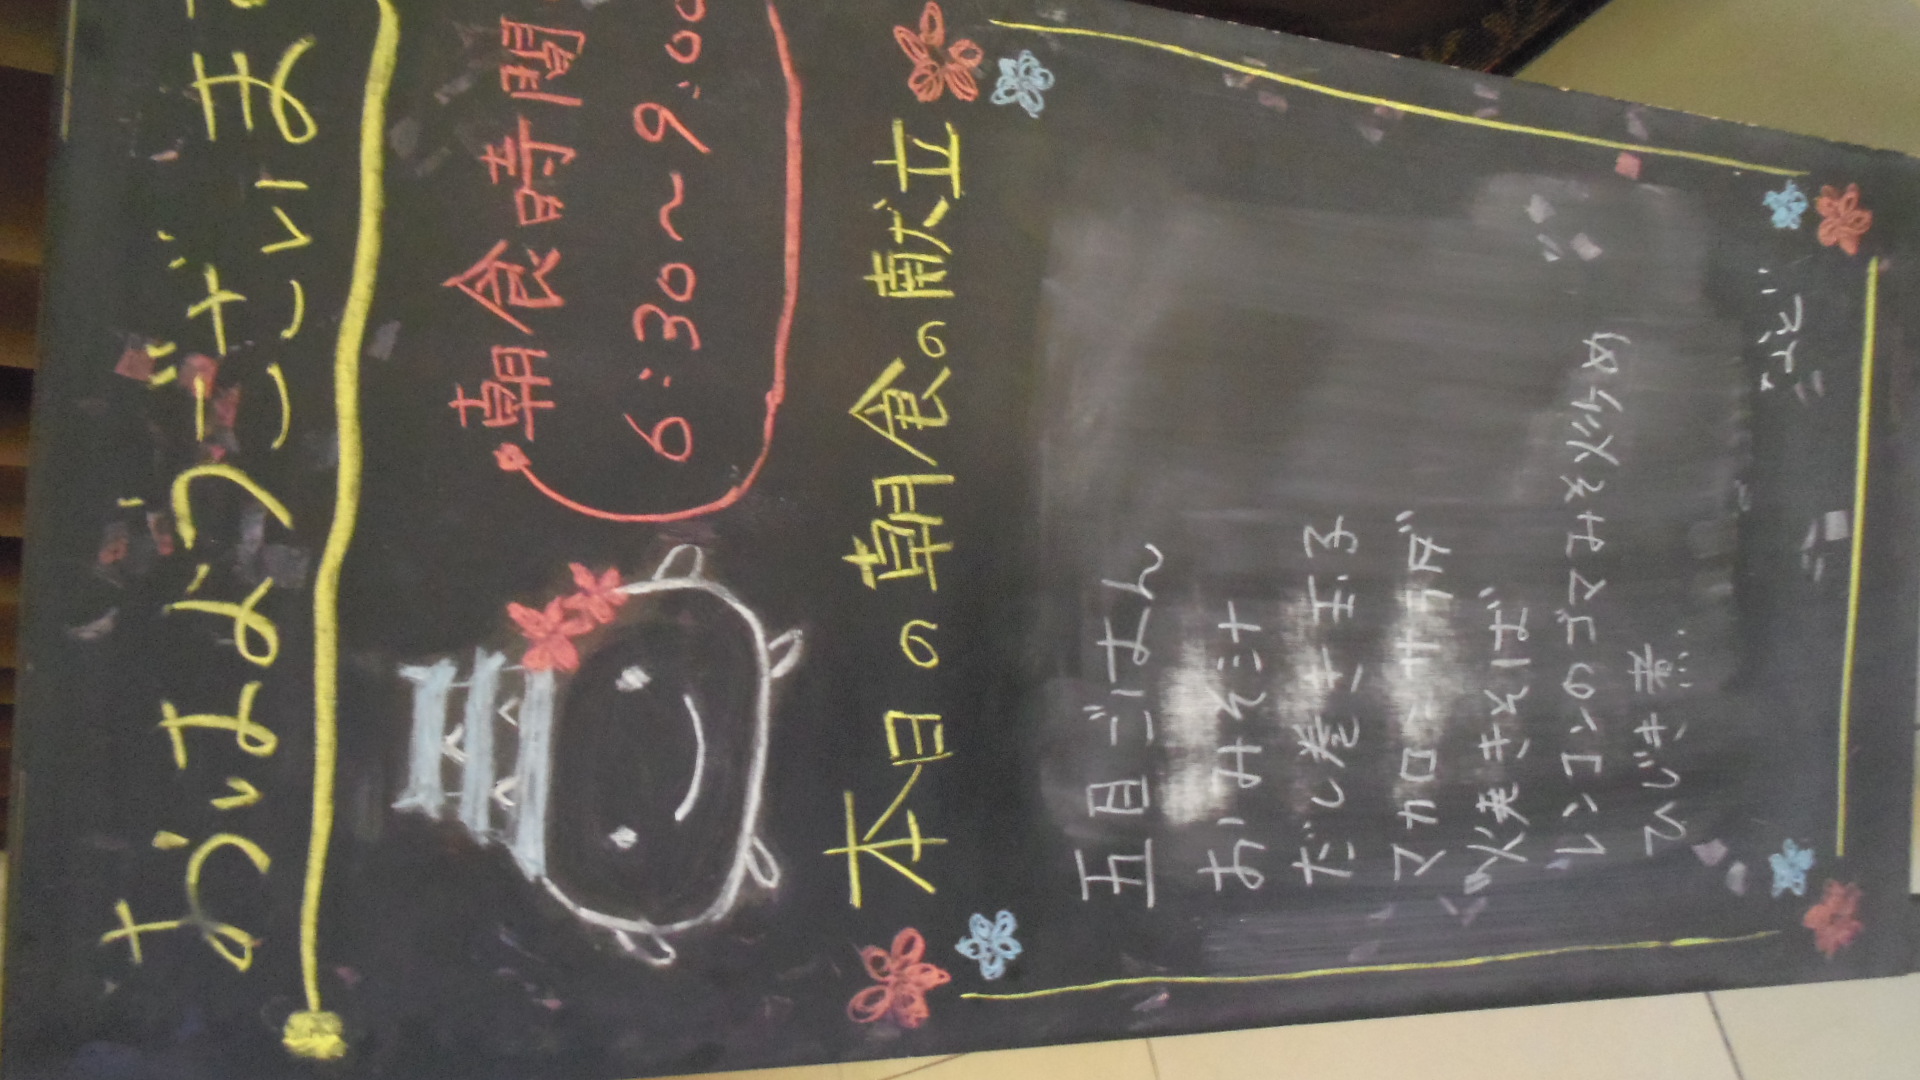 おはようございます
朝食時間
6:30〜9:00
本日の朝食の献立
五目ごはん
おみそ汁
だし巻き玉子
マカロニサラダ
焼きそば
レンコンのゴマみそ炒め
ひじき煮
など